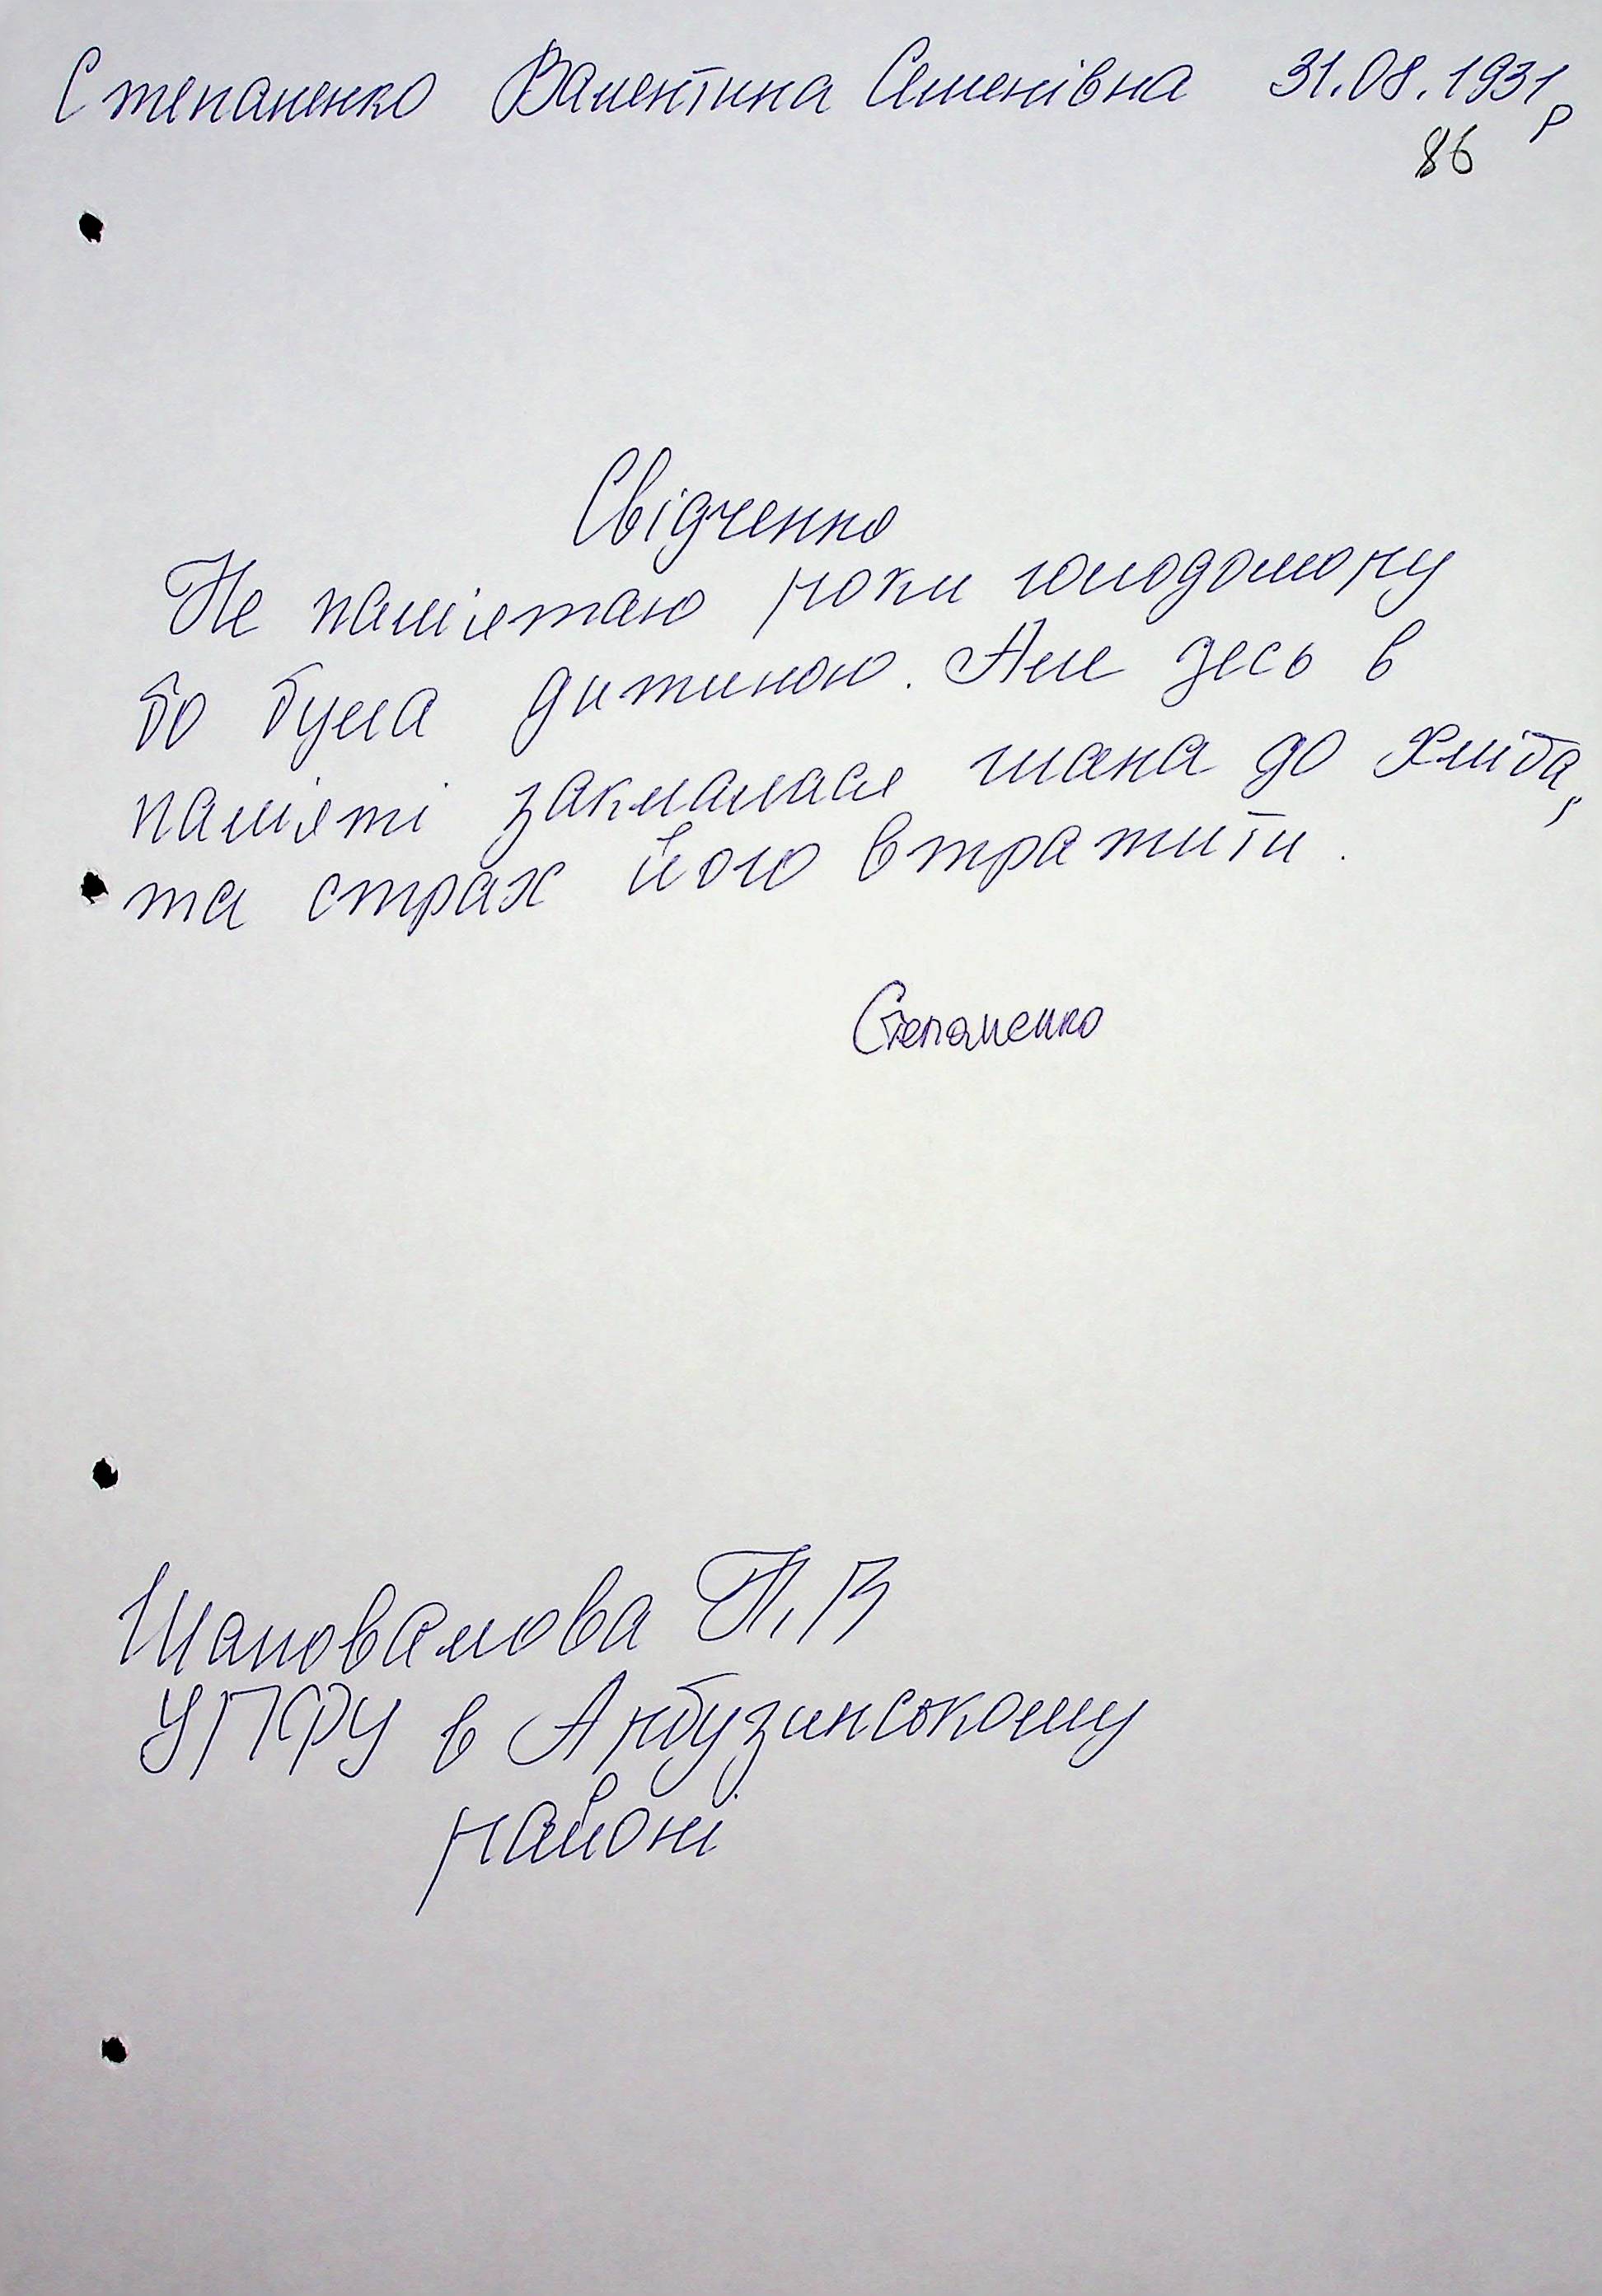 Степаненко Валентина Семенівна 31.08.1931р
86
Свідчення
Не пам'ятаю роки голодомору
бо була дитиною. Але десь в
пам'яті заклалася шана до хліба,
та страх його втратити.
Степаненко
Шаповалова Т.В
УПФУ в Арбузинському
районі